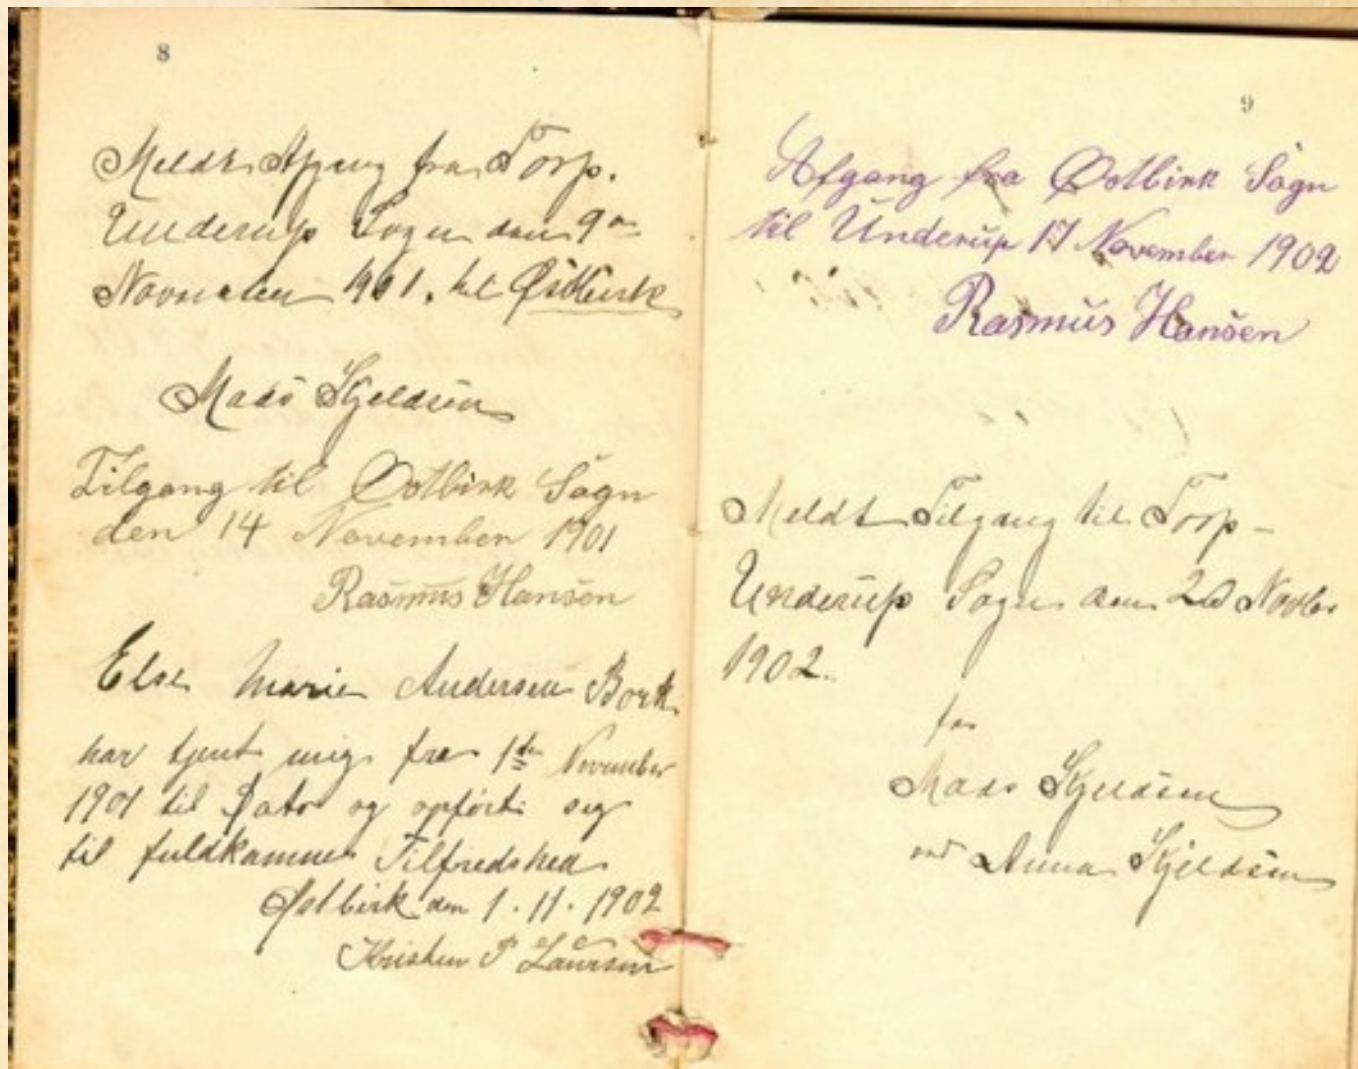 8
Meldt Afgang fra Torp.
Underup Sogn den 9de
November 1901. til Østbirk
Mads Kjeldsen
Tilgang til Østbirk Sogn
den 14 November 1901
Rasmus Hansen
Else Marie Andersen Bork
har tjent mig fra 1ste November
1901 til Dato og opført sig
til fuldkommen Tilfredshed
Østbirk den 1.11.1902
Kristen P Laursen
9
Afgang fra Østbirk Sogn
til Underup 17 November 1902
Rasmus Hansen
Meldt Tilgang til Torp-
Underup Sogn den 20 Novbr
1902.
for
Mads Kjeldsen
ved Anna Kjeldsen